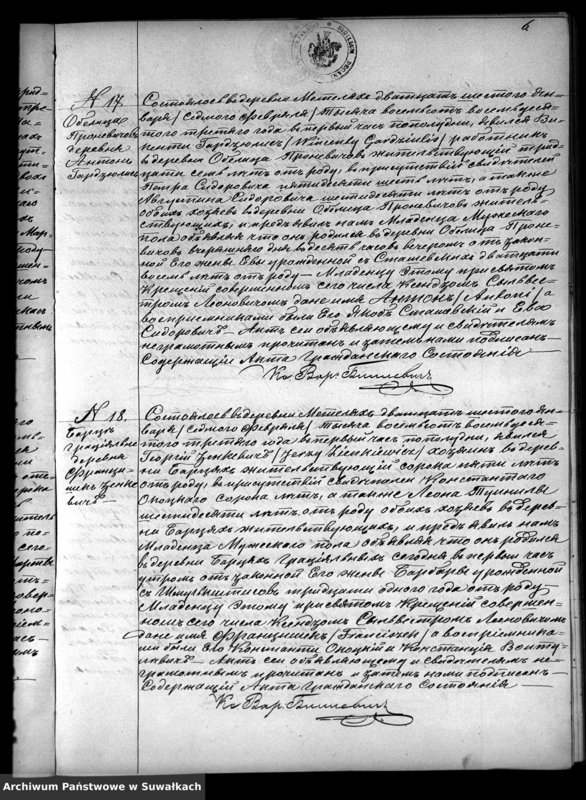 6
N 17.
Облица
Проневичовъ
деревня
Антонъ
Гардзюлисъ
Состоялось въ деревни Метеляхъ двадцать шестого Ян-
варя /седмого февраля/ тысяча восемьсотъ восемьдеся-
того третяго года въ первый часъ пополудни, явился Ви-
центи Гардзюлисъ /Wincenty Gardziulis/ работникъ
въ деревни Облица Проневичовъ жительствующій трид-
цати семь лѣтъ отъ роду, въ присутствіи свидѣтелей
Петра Сидоровича пятидесяти шесть лѣтъ, а также
Августина Сидоровича шестидесяти лѣтъ отъ роду
обоихъ хозяевъ въ деревни Облица Проневичовъ жителъ-
ствующихъ, и предъявилъ намъ Младенца Мужескаго
пола объявляя что онъ родился въ деревни Облица Проне-
вичовъ вчерашняго дня въ десять часовъ вечеромъ отъ закон-
ной Его жены Евы урожденной съ Сташевскихъ двадцати
восемь лѣтъ отъ роду — Младенцу этому при святомъ
Крещеніи совершенномъ сего числа Ксендзомъ Сильвес-
тромъ Леоновичомъ дано имя Антонъ /Antoni/ а
воспріемниками были Его Яковъ Сташевскій и Ева
Сидоровичъ — Актъ сей объявляющему и свидѣтелямъ
неграмотнымъ прочитанъ и затемъ нами подписанъ —
Содержащій Акта Гражданскаго Состоянія
Кс Вар. Билевичъ
N 18.
Барцы
Граціялны
деревня
Францы-
шекъ Зенке-
вичъ
Состоялось въ деревни Метеляхъ двадцать шестого Ян-
варя /седмого февраля/ тысяча восемьсотъ восемьдеся-
того третяго года въ первый часъ пополудни, явился
Георгій Зенкевичъ /Jerzy Zienkiewicz/ хозяинъ въ дерев-
ни Барцяхъ жительствующій сорока пяти лѣтъ
отъ роду, въ присутствіи свидѣтелей Константаго
Опоцкаго сорока лѣтъ, а также Леона Тупиилы
шестидесяти лѣтъ отъ роду обоихъ хозяевъ въ дерев-
ни Барцяхъ жительствующихъ, и предъявилъ намъ
Младенца Мужескаго пола объявляя что онъ родился
въ деревни Барцяхъ Граціялныхъ сегодня въ первый часъ
утромъ отъ законной Его жены Барбары урожденной
съ тридцати одного года отъ роду
Младенцу этому при святомъ Крещеніи совершен-
номъ сего числа Ксендзомъ Сильвестромъ Леоновичомъ
дано имя Францишекъ /Franciszek/ а воспріемника-
ми были Его Константи Опоцкій и Констанція Войту-
левичъ — Актъ сей объявляющему и свидѣтелямъ не-
грамотнымъ прочитанъ и затемъ нами подписанъ —
Содержащій Акта Гражданскаго Состоянія
Кс Вар. Билевичъ
Archiwum Państwowe w Suwałkach